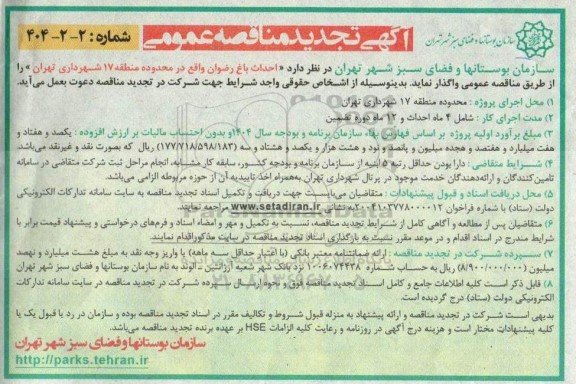 سازمان بوستانها و فضای سبز شهر تهران
آگهی تجدید مناقصه عمومی
شماره : ۲-۲-۴۰۴
سازمان بوستانها و فضای سبز شهر تهران در نظر دارد «احداث باغ رضوان واقع در محدوده منطقه ۱۷ شهرداری تهران» را
از طریق مناقصه عمومی واگذار نماید. بدینوسیله از اشخاص حقوقی واجد شرایط جهت شرکت در تجدید مناقصه دعوت بعمل می‌آید.
۱) محل اجرای پروژه : محدوده منطقه ۱۷ شهرداری تهران
۲) مدت اجرای کار : شامل ۴ ماه احداث و ۱۲ ماه دوره تضمین
۳) مبلغ برآورد اولیه پروژه بر اساس فهارس بهاء سازمان برنامه و بودجه سال ۱۴۰۴ و بدون احتساب مالیات بر ارزش افزوده : یکصد و هفتاد و
هفت میلیارد و هفتصد و هجده میلیون و پانصد و نود و هشت هزار و یکصد و هشتاد و سه (۱۷۷/۷۱۸/۵۹۸/۱۸۳) ریال که بصورت نقد و غیرنقد می‌باشد.
۴) شرایط متقاضی : دارا بودن حداقل رتبه ۵ ابنیه از سازمان برنامه و بودجه کشور، سابقه کار مشابه، انجام مراحل ثبت شرکت متقاضی در سامانه
تامین‌کنندگان و ارائه‌دهندگان خدمت موجود در پرتال شهرداری تهران به‌همراه اخذ تاییدیه آن از حوزه مربوطه الزامی می‌باشد.
۵) محل دریافت اسناد و قبول پیشنهادات : متقاضیان می‌بایست جهت دریافت و تکمیل اسناد تجدید مناقصه به سایت سامانه تدارکات الکترونیکی
دولت (ستاد) با شماره فراخوان ۲۰۰۴۱۰۳۷۷۸۰۰۰۰۱۲ به نشانی www.setadiran.ir مراجعه نمایند.
۶) متقاضیان پس از مطالعه و آگاهی کامل از شرایط تجدید مناقصه، نسبت به تکمیل و مهر و امضاء اسناد و فرم‌های درخواستی و پیشنهاد قیمت برابر با
شرایط مندرج در اسناد اقدام و در موعد مقرر نسبت به بارگذاری اسناد تجدید مناقصه در سایت مذکور اقدام نمایند.
۷) سپرده شرکت در تجدید مناقصه : ارائه ضمانتنامه معتبر بانکی (با اعتبار حداقل سه ماهه) یا واریز وجه نقد به مبلغ هشت میلیارد و نهصد
میلیون (۸/۹۰۰/۰۰۰/۰۰۰) ریال به حساب شماره ۱۰۰۶۰۷۲۴۳۸ نزد بانک شهر شعبه آرژانتین - الوند به نام سازمان بوستانها و فضای سبز شهر تهران
۸) قابل ذکر است کلیه اطلاعات جامع و کامل اسناد تجدید مناقصه فوق و نحوه ارسال سپرده شرکت در تجدید مناقصه در سایت سامانه تدارکات
الکترونیکی دولت (ستاد) درج گردیده است.
بدیهی است شرکت در تجدید مناقصه و ارائه پیشنهاد به منزله قبول شروط و تکالیف مقرر در اسناد تجدید مناقصه بوده و سازمان در رد یا قبول یک یا
کلیه پیشنهادات مختار است و هزینه درج آگهی در روزنامه و رعایت کلیه الزامات HSE بر عهده برنده تجدید مناقصه می‌باشد.
سازمان بوستانها و فضای سبز شهر تهران
http://parks.tehran.ir